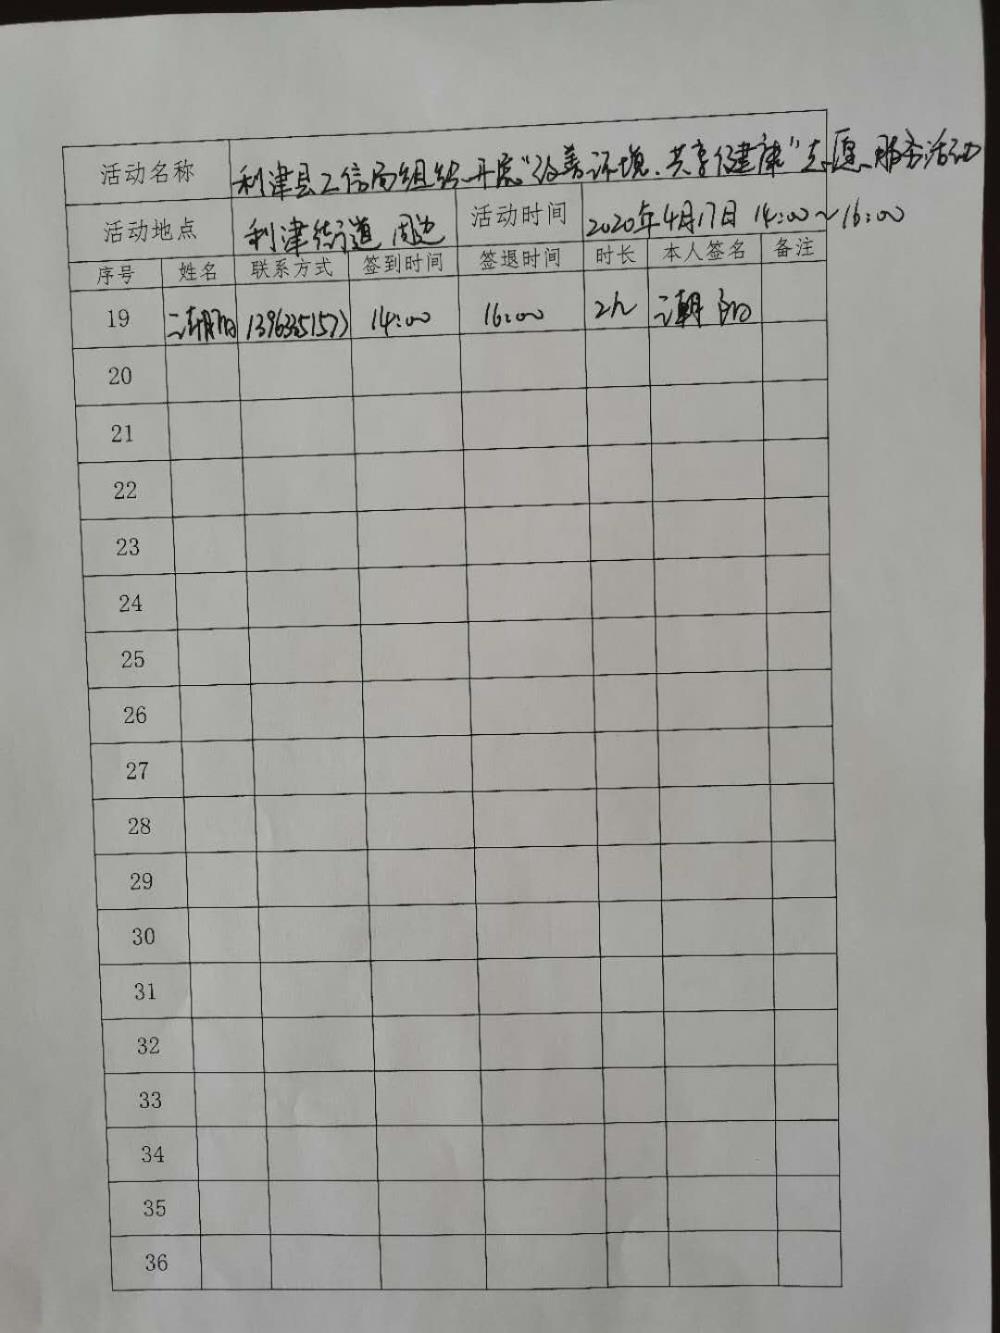 活动名称 利津县工信局组织开展“改善环境、共享健康”志愿服务活动
活动地点 利津街道 周边 活动时间 2020年4月17日 14:00~16:00
序号 姓名 联系方式 签到时间 签退时间 时长 本人签名 备注
19 朝阳 14:00 16:00 2h 朝阳
20
21
22
23
24
25
26
27
28
29
30
31
32
33
34
35
36